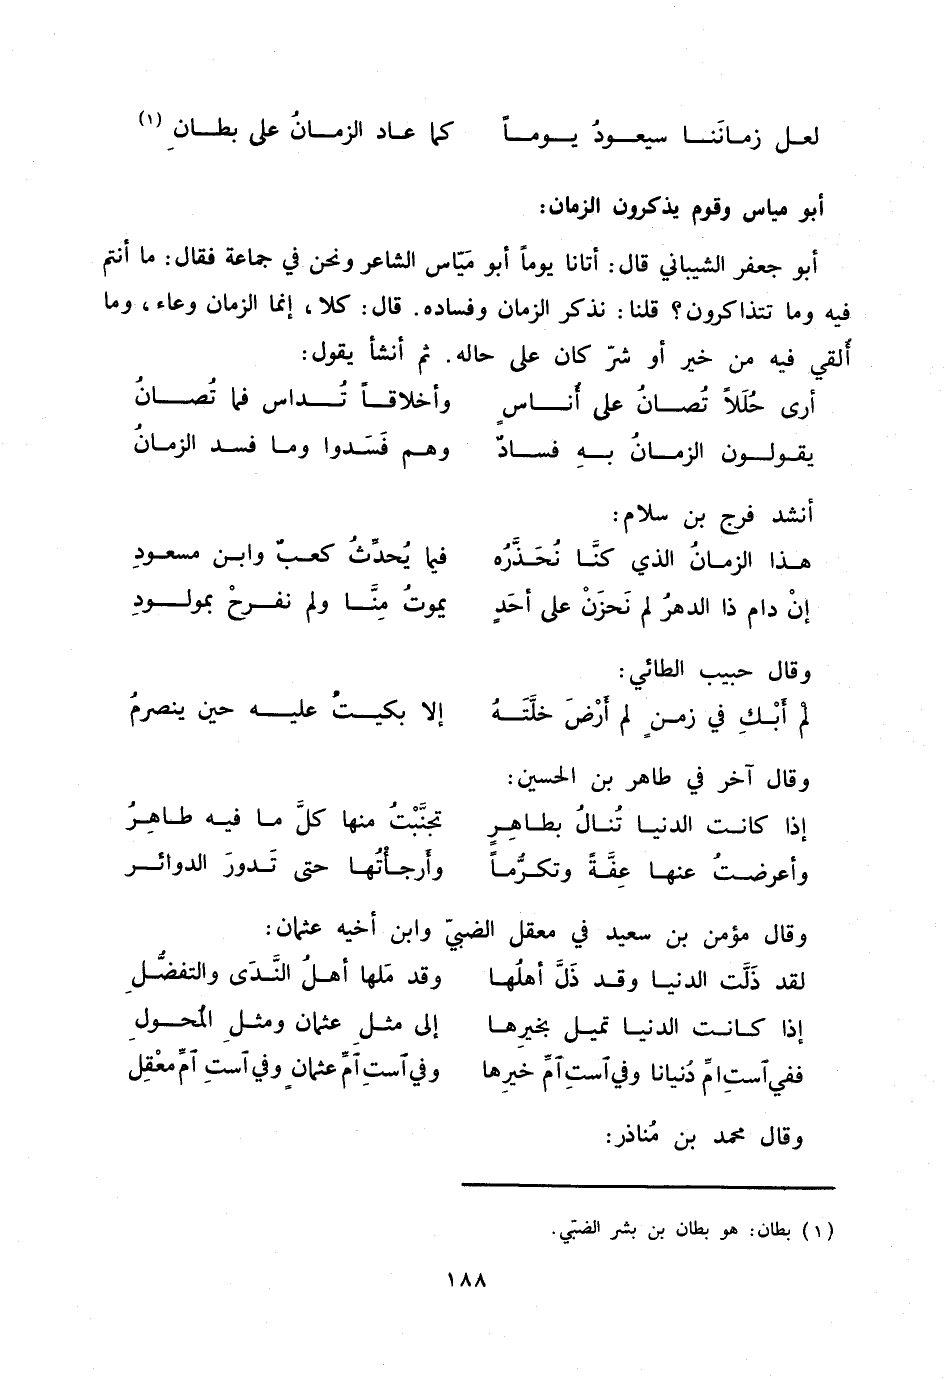 لعل زمانَنا سيعودُ يوماً كما عاد الزمانُ على بطانِ (١)
أبو مياس وقوم يذكرون الزمان:
أبو جعفر الشيباني قال: أتانا يوماً أبو ميّاس الشاعر ونحن في جماعة فقال: ما أنتم
فيه وما تتذاكرون؟ قلنا: نذكر الزمان وفساده. قال: كلا، إنما الزمان وعاء، وما
أُلقي فيه من خير أو شرّ كان على حاله. ثم أنشأ يقول:
أرى حُلَلاً تُصانُ على أُناسٍ وأخلاقاً تُداس فما تُصانُ
يقولون الزمانُ بهِ فسادٌ وهم فَسَدوا وما فسد الزمانُ
أنشد فرج بن سلام:
هذا الزمانُ الذي كنَّا نُحَذَّرُه فيما يُحدِّثُ كعبٌ وابن مسعودِ
إنْ دام ذا الدهرُ لم نَحزَنْ على أحَدٍ يموتُ مِنَّا ولم نفرحْ بمولودِ
وقال حبيب الطائي:
لَمْ أَبْكِ في زمنٍ لم أَرْضَ خلَّتَهُ إلا بكيتُ عليه حين ينصرمُ
وقال آخر في طاهر بن الحسين:
إذا كانت الدنيا تُنالُ بطاهرٍ تجنَّبْتُ منها كلَّ ما فيه طاهِرُ
وأعرضتُ عنها عِفَّةً وتكرُّماً وأَرجأْتُها حتى تَدورَ الدوائر
وقال مؤمن بن سعيد في معقل الضبيّ وابن أخيه عثمان:
لقد ذَلَّت الدنيا وقد ذَلَّ أهلُها وقد مَلها أهلُ النَّدَى والتفضُّلِ
إذا كانت الدنيا تميل بخيرِها إلى مثلِ عثمان ومثلِ المُحولِ
ففي آستِ امِّ دُنيانا وفي آستِ آمِّ خيرِها وفي آستِ آمِّ عثمانٍ وفي آستِ آمِّ معْقِلِ
وقال محمد بن مُناذر:
(١) بطان: هو بطان بن بشر الضبّي.
١٨٨